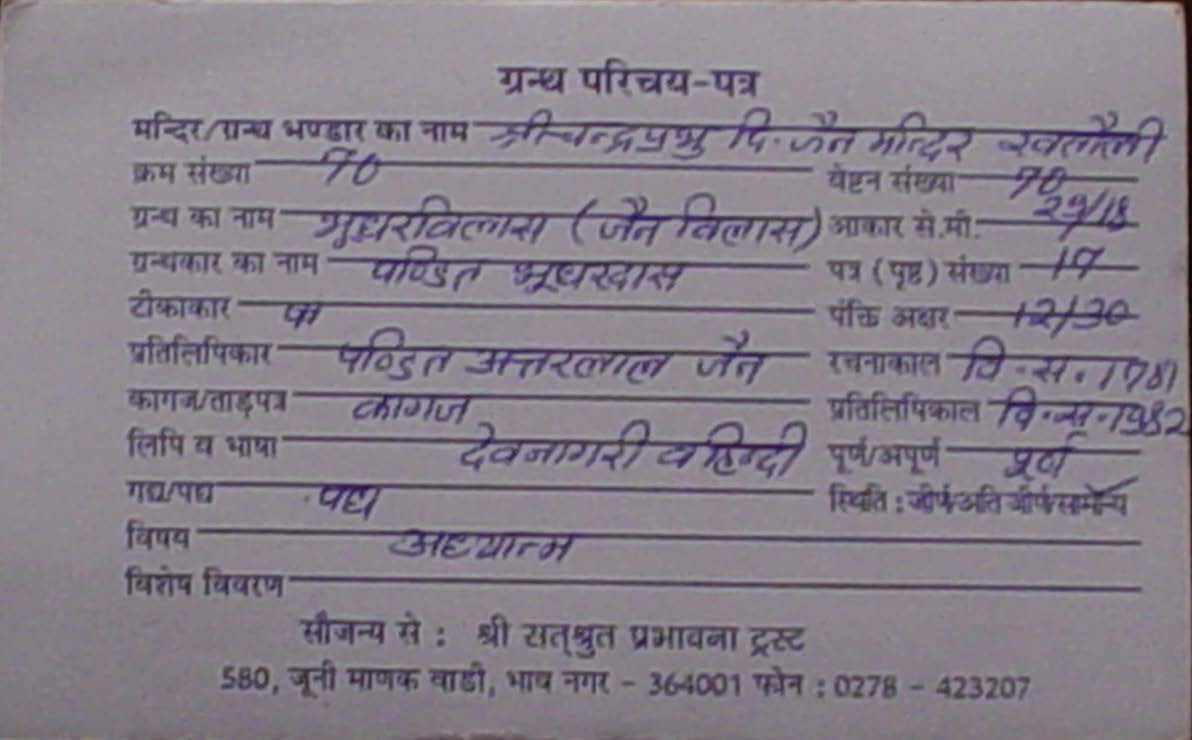 ग्रन्थ परिचय-पत्र
मन्दिर/ग्रन्थ भण्डार का नाम श्रीचन्द्रप्रभु दि. जैन मन्दिर खतौली
क्रम संख्या 70 वेष्टन संख्या 70
ग्रन्थ का नाम भूधरविलास (जैन विलास) आकार से.मी.
ग्रन्थकार का नाम पण्डित भूधरदास पत्र (पृष्ठ) संख्या 17
टीकाकार पंक्ति अक्षर 12/30
प्रतिलिपिकार पण्डित अत्तरलाल जैन रचनाकाल वि.स. 1781
कागज/ताड़पत्र कागज प्रतिलिपिकाल वि.स. 1982
लिपि व भाषा देवनागरी व हिन्दी पूर्ण/अपूर्ण पूर्ण
गद्य/पद्य पद्य स्थिति : जीर्ण/अति जीर्ण/सामान्य
विषय अध्यात्म
विशेष विवरण
सौजन्य से : श्री सत्श्रुत प्रभावना ट्रस्ट
580, जूनी माणक वाडी, भाव नगर - 364001 फोन : 0278 - 423207